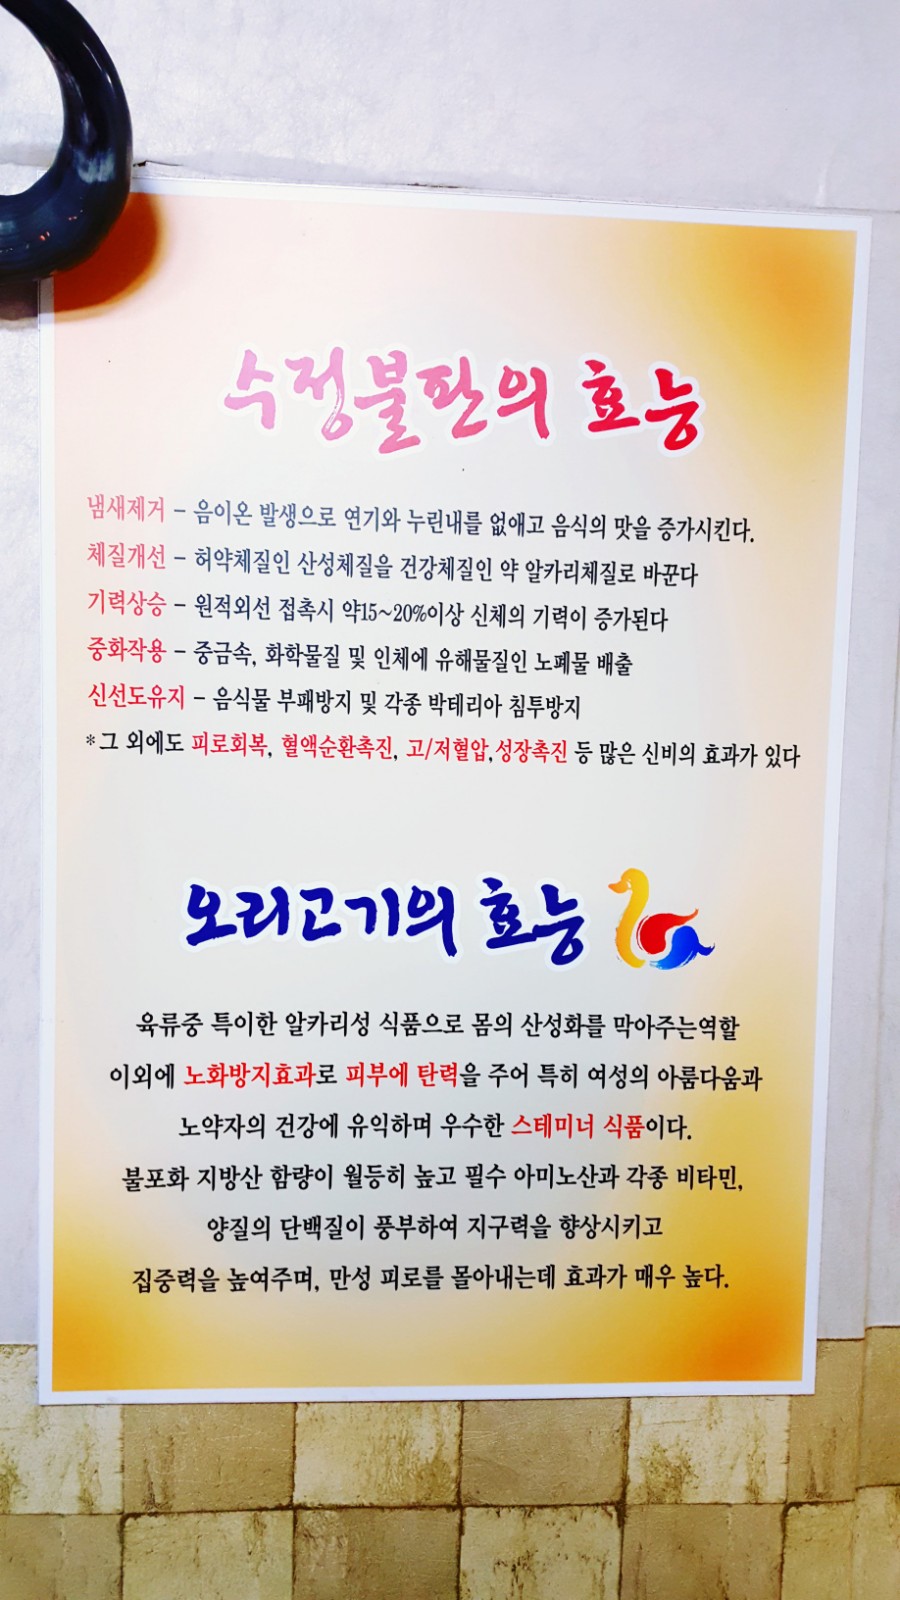 수정불판의 효능
냄새제거 – 음이온 발생으로 연기와 누린내를 없애고 음식의 맛을 증가시킨다.
체질개선 – 허약체질인 산성체질을 건강체질인 약 알카리체질로 바꾼다
기력상승 – 원적외선 접촉시 약15~20%이상 신체의 기력이 증가된다
중화작용 – 중금속, 화학물질 및 인체에 유해물질인 노폐물 배출
신선도유지 – 음식물 부패방지 및 각종 박테리아 침투방지
*그 외에도 피로회복, 혈액순환촉진, 고/저혈압,성장촉진 등 많은 신비의 효과가 있다
오리고기의 효능
육류중 특이한 알카리성 식품으로 몸의 산성화를 막아주는역할
이외에 노화방지효과로 피부에 탄력을 주어 특히 여성의 아룸다움과
노약자의 건강에 유익하며 우수한 스테미너 식품이다.
불포화 지방산 함량이 월등히 높고 필수 아미노산과 각종 비타민,
양질의 단백질이 풍부하여 지구력을 향상시키고
집중력을 높여주며, 만성 피로를 몰아내는데 효과가 매우 높다.